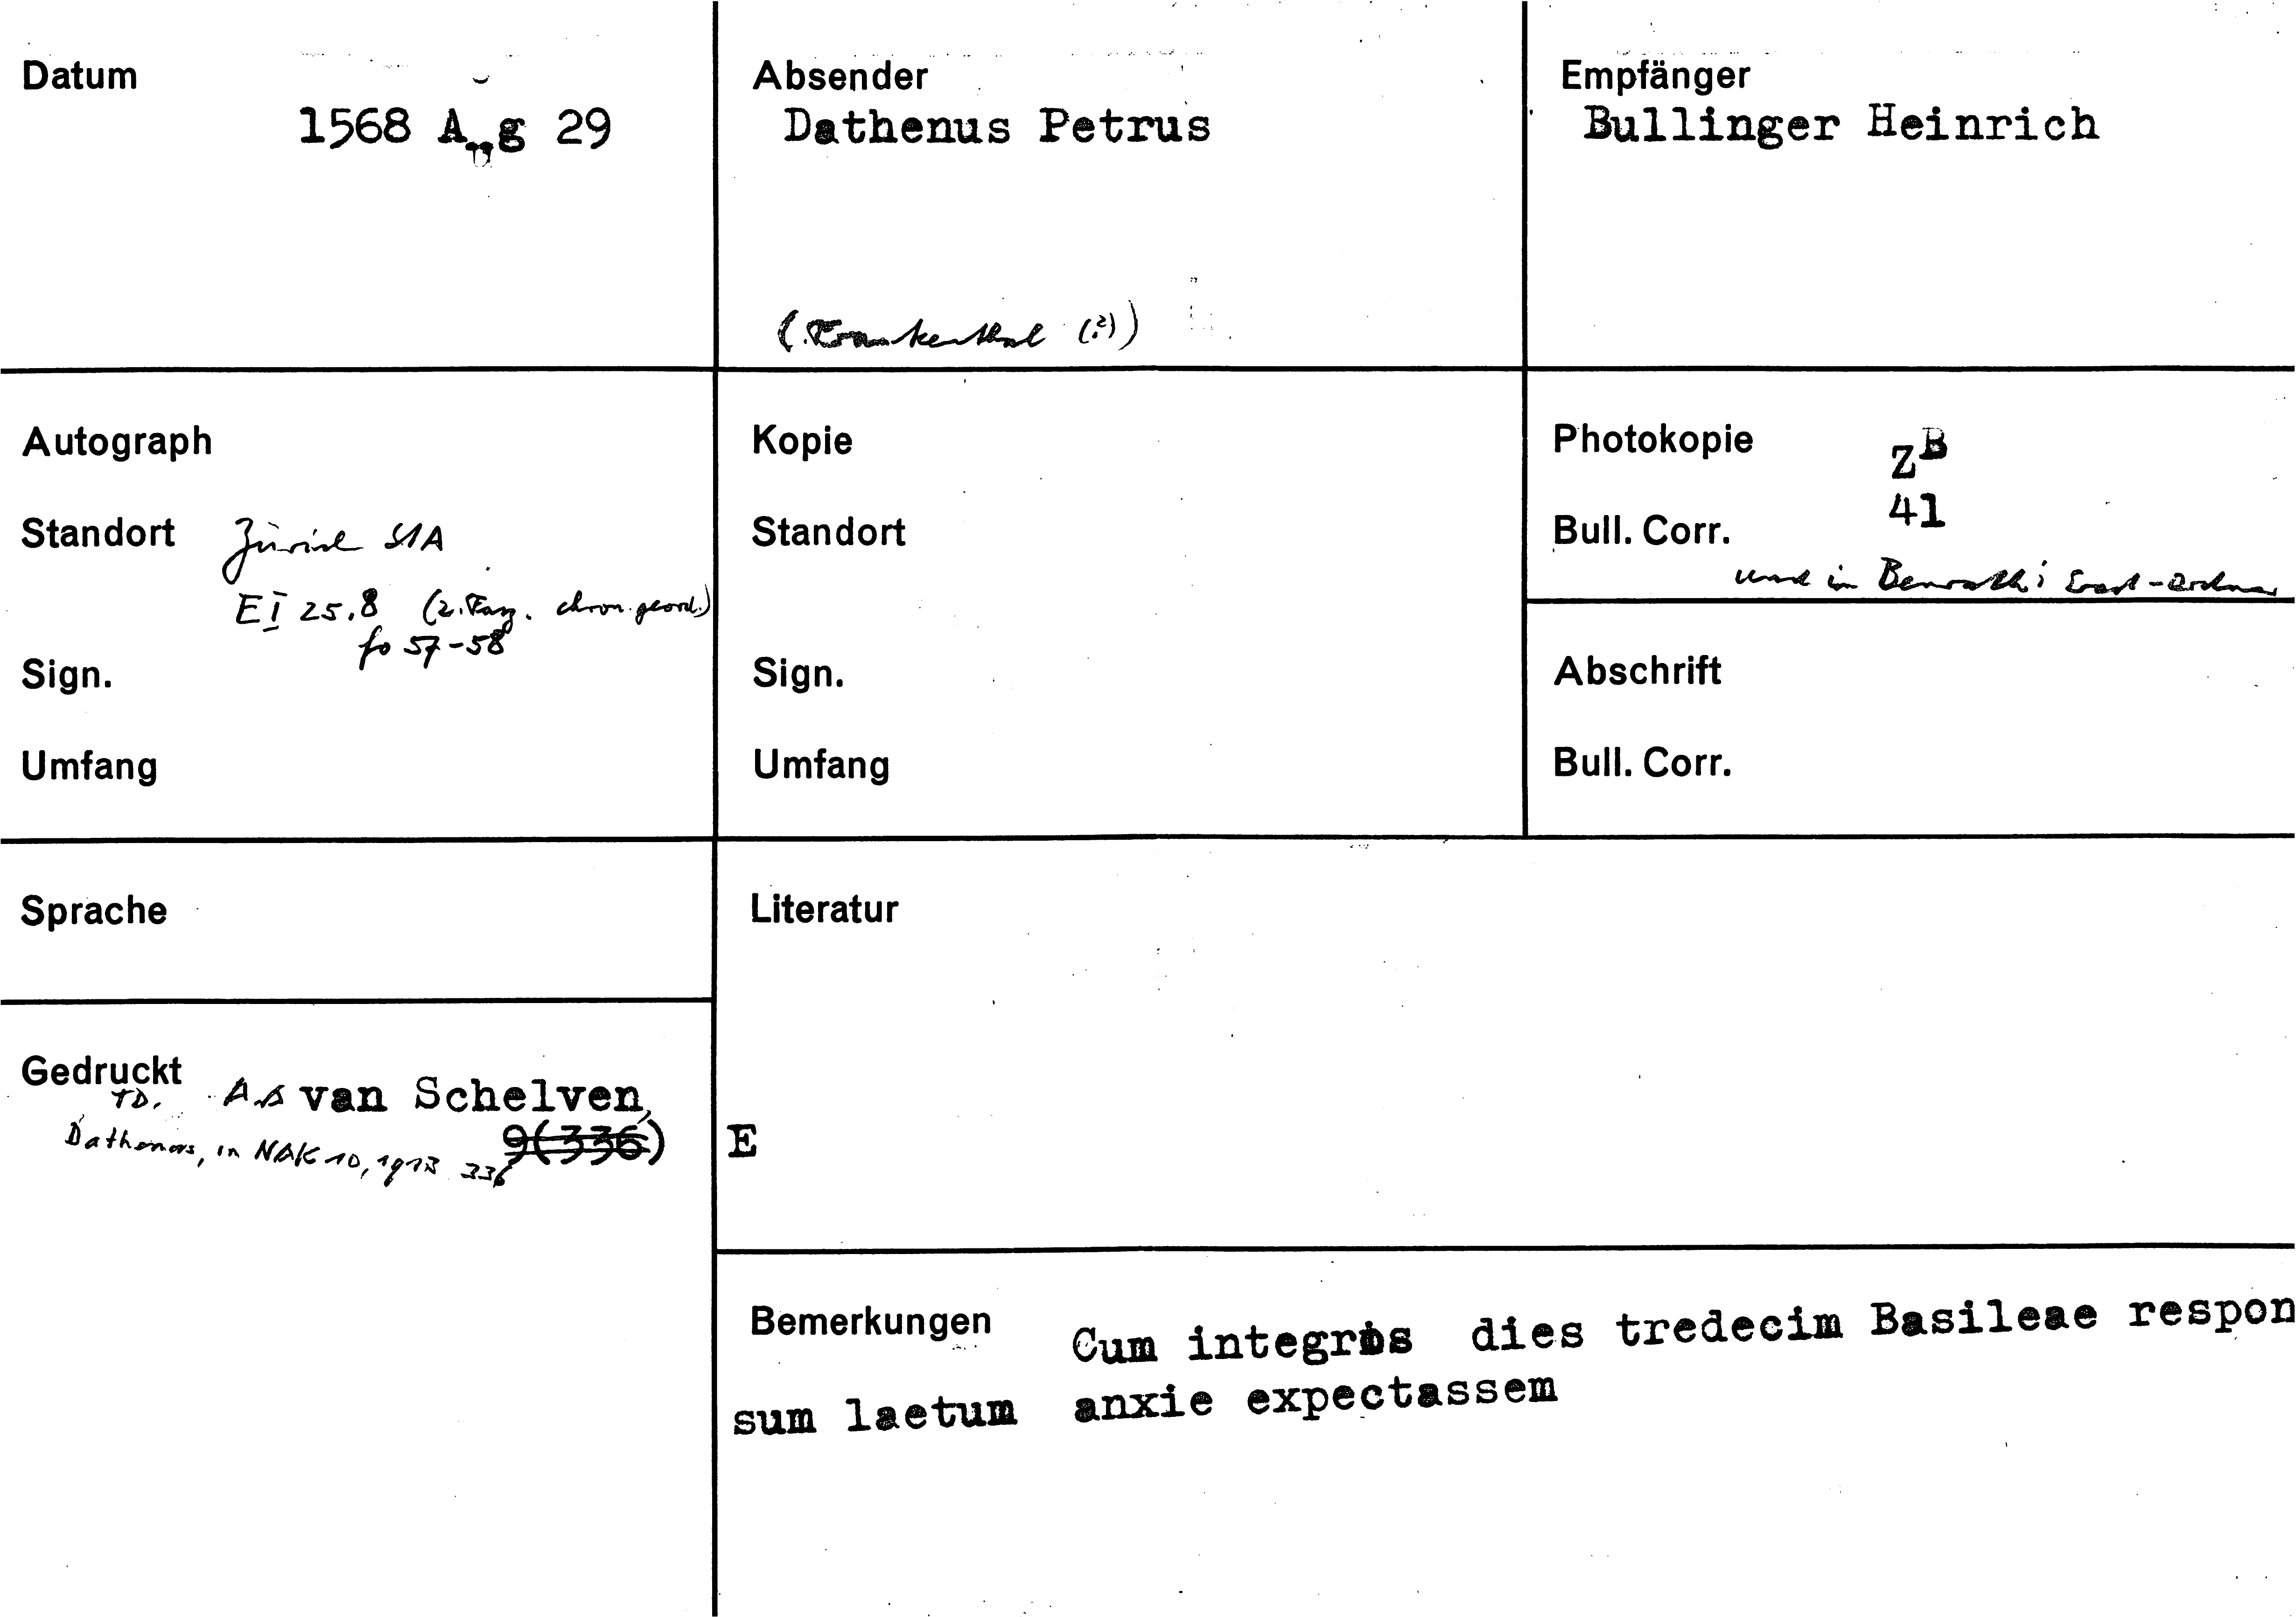 Datum
1568 Aug 29
Absender
Dathenus Petrus
(Frankenthal (?))
Empfänger
Bullinger Heinrich
Autograph
Standort Zürich StA
E I 25.8 (2. Fasz. chron. geord.)
fo 57-58
Sign.
Umfang
Kopie
Standort
Sign.
Umfang
Photokopie ZB
Bull. Corr. 41
und in Benrath's Erast-Ordner
Abschrift
Bull. Corr.
Sprache
Gedruckt
TD. A.A van Schelven,
9(336)
Dathenus, in NAK 10, 1913 336
Literatur
E
Bemerkungen Cum integros dies tredecim Basileae respon
sum laetum anxie expectassem